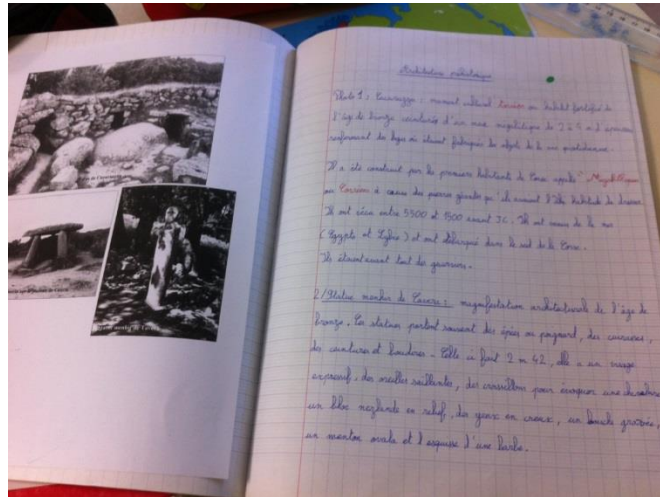 Architecture préhistorique
Photo 1 : Cucuruzzu : monument culturel Torréen ou habitat fortifié de
l'âge de bronze ceinturée d'un mur mégalithique de 2 à 5 m d'épaisseur
renfermant des loges où étaient fabriqués les objets de la vie quotidienne.
Il a été construit par les premiers habitants de Corse appelés "Mégalithiques
ou Torréens à cause des pierres géantes qu'ils avaient l'habitude de dresser.
Ils ont vécu entre 3500 et 1500 avant JC. Ils ont venus de la mer
(Egypte et Lybie) et ont débarqué dans le sud de la Corse.
Ils étaient avant tout des guerriers.
2/Statue menhir de Tavera : magnifestation architecturale de l'âge de
bronze. Ces statues portent souvent des épées ou poignard, des cuirasses,
des ceintures et boudriers. Celle ci fait 2 m 42, elle a un visage
expressif : des oreilles saillantes, des croisillons pour évoquer une chevelure
un bloc en relief, des yeux en creux, un bouche
un menton ovale et l'esquisse d'une barbe.